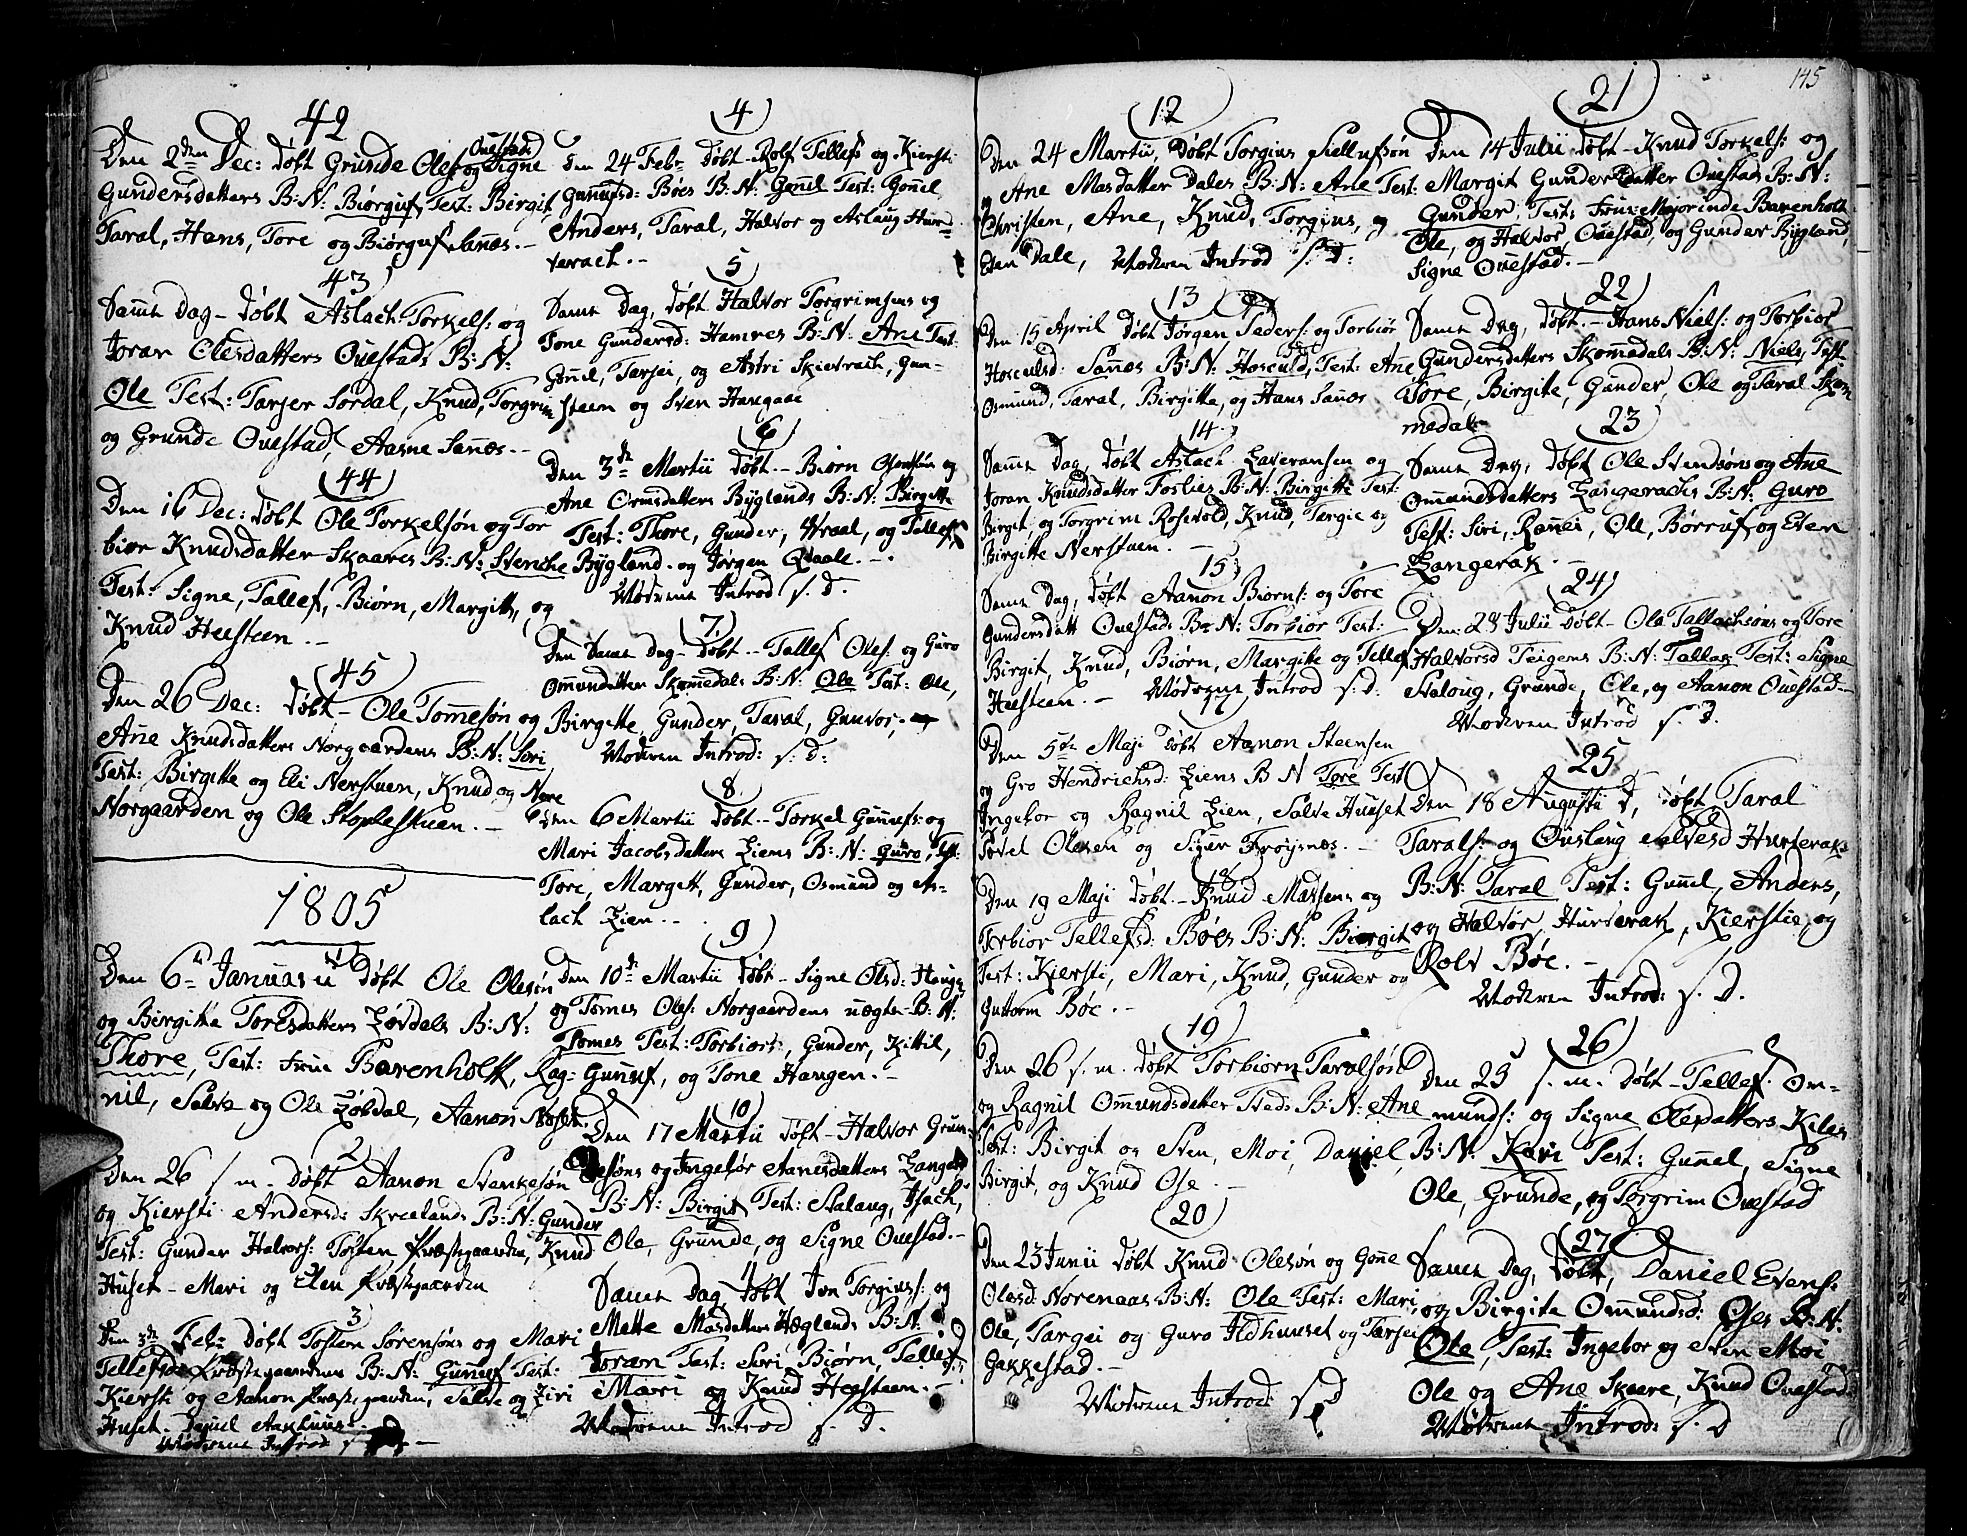 42
Den 2den Dec: døbt Grunde Oles og Signe
Ouestad
Gundersdatters B:N: Biørguf, Test: Birgit,
Taral, Hans, Tore og Biørguf Sanæs. -
43
Samme Dag - døbt Aslach Torkels: og
Joran Olesdatters Ouestads B:N:
Ole Test: Tarjer Sordal, Knud, Torgrim
og Grunde Ouestad, Aasne Sanæs. -
44
Den 16 Dec: døbt Ole Torkelsøn og Tor
biør Knudsdatter Skaares B:N: Stenche
Test: Signe, Tallef, Biørn, Margitt, og
Knud Heesteen. -
45
Den 26 Dec: døbt - Ole Tomesøn og
Ane Knudsdatters Norgaardens B:N: Sori
Test: Birgitte og Eli Nerstuen, Knud og Nore
Norgaarden og Ole Stoplestuen. -
1805
1
Den 6te Januarii døbt Ole Olesøn
og Birgitta Toresdatters Løvdals B:N:
Thore, Test: Frue Barenholt, Rag-
nil, Salve og Ole Løbdal, Aanon
2
Den 26 s. m. døbt Aanon Stenkesøn
og Kiersti Andersd: Skreelands B:N: Gunder
Test: Gunder Halvors: Tosten Præstegaarden, Knud
Huset - Mari og Elen Præstegaarden
3
Den 3de Feb: døbt Tosten Sørensøns og Mari
Tellefsd: Præstegaardens B:N: Gunuf Test:
Kiersti og Aanon Præstegaarden, Salve og Ziri
Huset. Aakhuus. -
Modrene Introd s. D. -
4
Den 24 Febr døbt - Rolf Tellefs og Kiersti
Gunufsd: Bøes B:N: Gonil Test: Gonil,
Anders, Taral, Halvor og Aslaug Hur-
terach. -
5
Samme Dag, døbt Halvor Torgrimsens og
Tone Gundersd: Hamres B:N: Ane Test:
Gonil, Tarjei, og Astri Skievrach, Gun-
steen og Sven Haregaae
6
Den 3de Martii døbt - Biørn Osmsøn og
Ane Ormsdatters Byglands B:N: Birgitte
Test: Thore, Gunder, Wraal, og Tallef
Bygland. og Jørgen Qvaale. -
Modrene Introd s. D.
7
Den Samme Dag - døbt - Tallef Oles: og Guro
Omundatter Skomedals B:N: Ole Test: Ole,
Birgitte, Gunder, Taral, Gunvor,
Modren Introd: s. D:
8
Den 6 Martii døbt - Torkel Gunufs: og
Mari Jacobsdatters Liens B:N: Guro, Test:
Tore, Margett, Gunder, Osmund og As-
lach Lien. -
9
Den 10de Martii døbt - Signe Olsd: Haugen
og Tomes Oles: Norgaardens uægte B:N:
Tomes Test: Torbiør, Gunder, Kittil,
Gunuf, og Tone Haugen. -
10
Den 17 Martii døbt - Halvor Grun-
desøns og Ingebør Aanesdatters Langer
B:N: Birgit Test: Stalaug, Isach,
Ole, Grunde, og Signe Ouestad. -
11
Samme Dag, døbt Jon Torgius: og
Mette Masdatters Hæglands B:N:
Joran Test: Sori, Biørn, Tellef,
Mari og Knud Heesteen. -
Modrene Introd s. D.
145
12
Den 24 Martii, døbt Torgius Siellufsøn
og Ane Masdatter Dales B:N: Ane Test:
Christen, Ane, Knud, Torgius, og
Even Dale, Modren Introd s. D:
13
Den 15 April døbt Jørgen Peders: og Torbiør
Hoseulsd: Sanæs B:N: Hoseuld, Test: Ane
Osmund, Taral, Birgitta, og Hans Sanæs
14
Samme Dag, døbt Aslach Laveransen og
Joran Knudsdatter Foslies B:N: Birgitte Test:
Birgit, og Torgrim Rosevold, Knud, Targie og
Birgitte Nerstuen. -
15
Samme Dag, døbt Aanon Biørns: og Tore
Gundersdatt Ouestads B:N: Torbiør Test:
Birgit, Knud, Biørn, Margitte og Tellef
Heesteen. - Modrene Introd s. D:
Den 5te Maji døbt Aanon Steensen
og Gro Hendrichsd: Liens B N Tore Test
Ingebor og Ragnil Lien, Salve Huuset
Povel Olsen og Sigur Frøysnes. -
18
Den 19 Maji døbt - Knud Madsens og
Torbior Tellefsd: Bøes B:N: Birgit
Test: Kiersti, Mari, Knud, Gunder og
Guttorm Bøe. -
19
Den 26 s. m. døbt Torbiørn Taralsøn
og Ragnil Omundsdatter Steds B:N: Ane
Test: Birgit og Sven, Moi, Daniel,
Birgit, og Knud Ose. -
20
Den 23 Junii døbt Knud Olesøn og Gone
Olesd: Norenaas B:N: Ole Test: Mari
Ole, Targei og Guro Ildhuuset og Tarjei
Gakkestad. -
Modrene Introd: s. D
21
Den 14 Julii døbt - Knud Torkels: og
Margit Gunderdatter Ouestads B:N:
Gunder, Test: Frue Majorinde Barenholt
Ole, og Halvor, Ouestad, og Gunder Bygland,
Signe Ouestad. -
22
Samme Dag, døbt - Hans Niels: og Torbiør
Gundersdatters Skomedals B:N: Niels Test
Tore, Birgite, Gunder, Ole og Taral Skom
medal.
23
Samme Dag, døbt Ole Svendsøns og Ane
Omundsdatters Langerachs B:N: Guro
Test: Siri, Ranei, Ole, Børruf og Even
Langerak. -
24
Den 28 Julii døbt - Ole Tallachsøns og Tore
Halvorsd Teigens B:N: Tallak Test: Signe
Staloug, Grunde, Ole, og Aanon Ouestad -
Modren Introd s. D.
25
Den 18 Augustii, døbt Taral
Tarals: og Ouslaug Salvesd Hurterak
B:N: Taral Test: Gunil, Anders,
og Halvor, Hurterak, Kierstie, og
Rolv Bøe. -
Modren Introd: s. D.
26
Den 25 s. m. døbt - Tellef Om-
munds: og Signe Olesdatters Kiles
B:N: Kari Test: Gunnel, Signe
Ole, Grunde, og Torgrim Ouestad
27
Samme Dag, døbt, Daniel Evens:
og Birgite Omundsd: Oses B:N:
Ole, Test: Ingebor og Sven Moi
Ole og Ane Skaare, Knud Ouestad
Modrene Introd: s. D